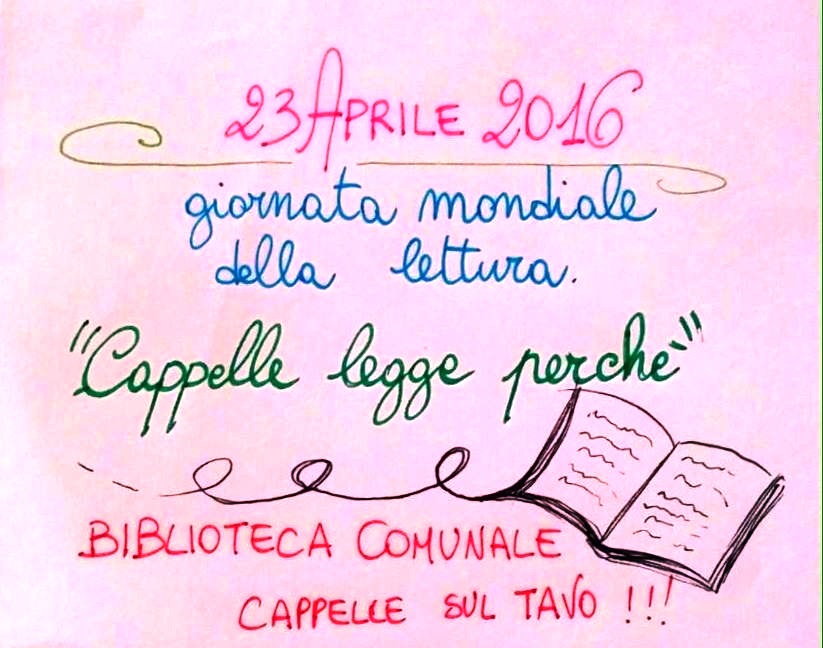 23 APRILE 2016
giornata mondiale
della lettura.
"Cappelle legge perchè"
BIBLIOTECA COMUNALE
CAPPELLE SUL TAVO !!!